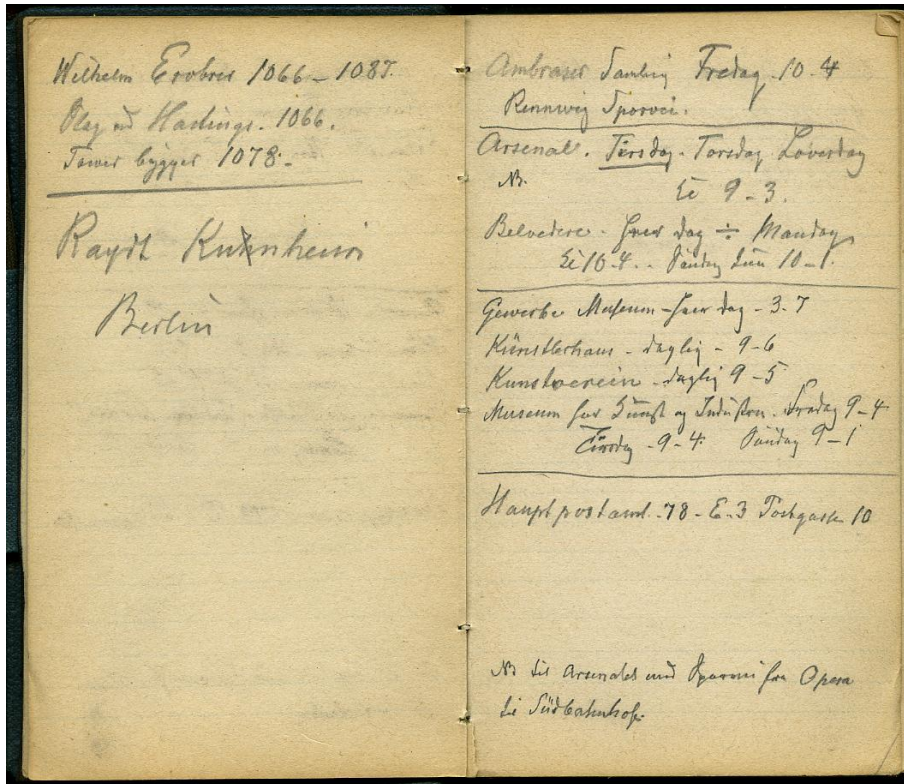 Wilhelm Erobrer 1066 – 1087.
Slag ved Hastings. 1066.
Tower bygges 1078. –
Raydt
Berlin
Ambraser Samling Fredag. 10-4
Rennweg Sporvei.
Arsenal. Tirsdag. Torsdag Løverdag
NB. Kl 9-3.
Belvedere – hver dag ÷ Mandag
Kl 10-4. – Søndag kun 10-1.
Gewerbe Museum – hver dag – 3-7
Künstlerhaus – daglig – 9-6
Kunstverein – daglig 9-5
Museum for Kunst og Industri. Fredag 9-4
Tirsdag – 9-4. Søndag 9-1
Hauptpostamt. 78 – E-3 Postgasse 10
NB til Arsenalet med Sporvei fra Opera
til Südbahnhof.